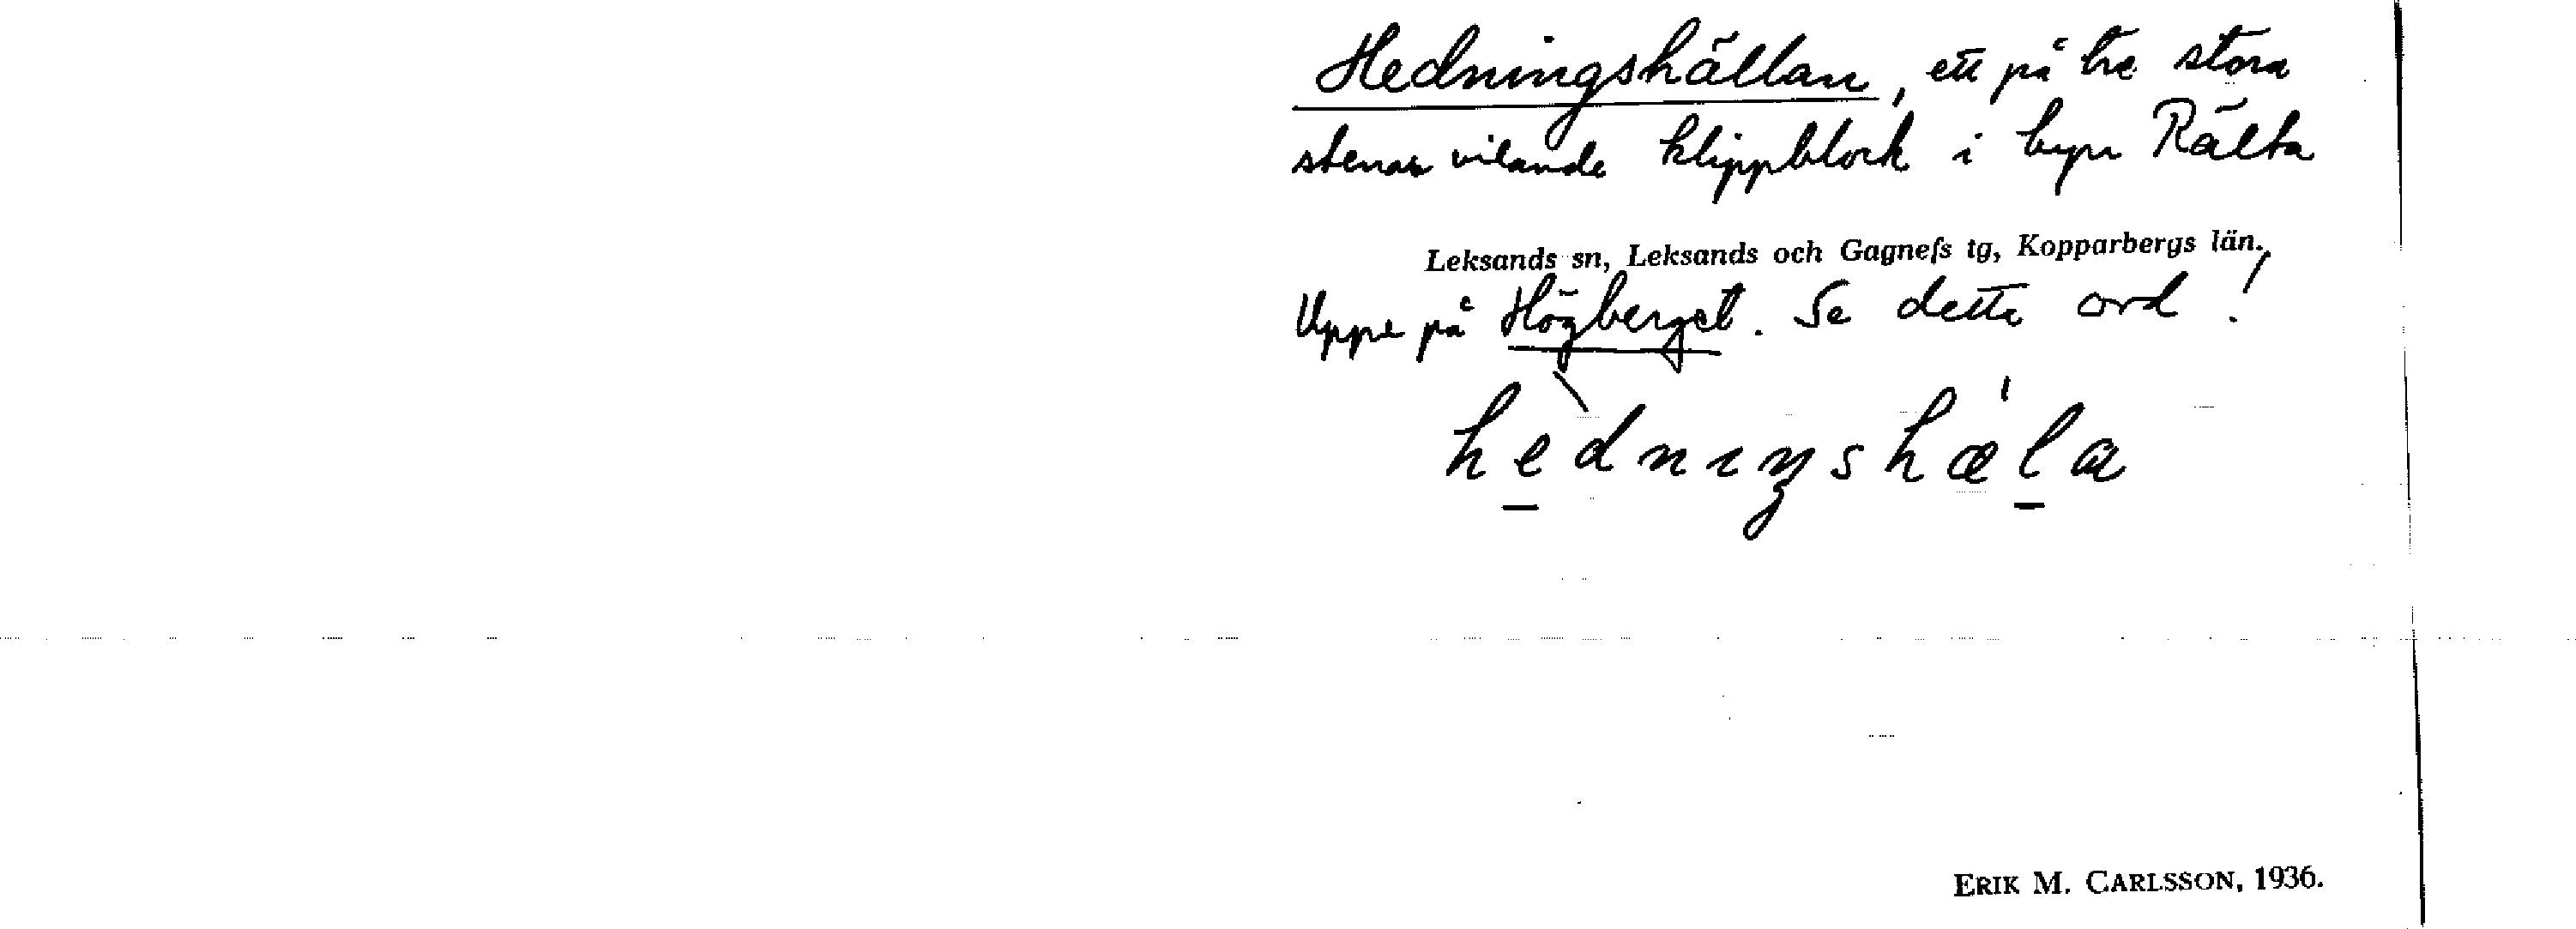 Hedningshällan, ett på tre stora
stenar vilande klippblock i byn Rälta
Leksands sn, Leksands och Gagnefs tg, Kopparbergs län.
Uppe på Högberget. Se detta ord!
hèdnıŋshǽla
ERIK M. CARLSSON, 1936.